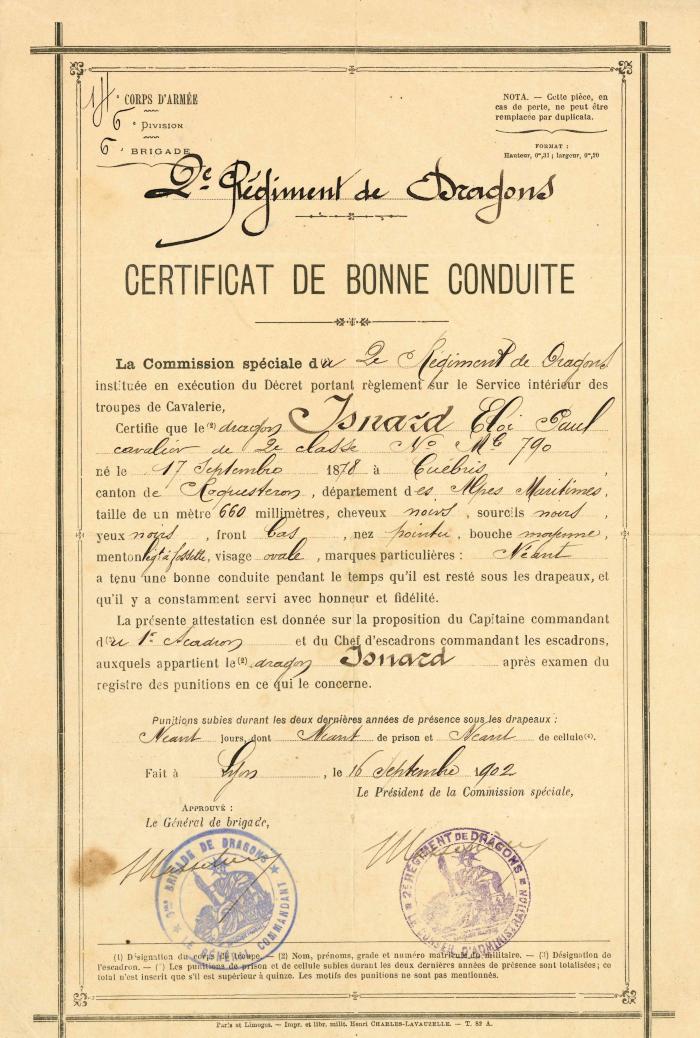 14e CORPS D'ARMÉE
6e DIVISION
6e BRIGADE
NOTA. — Cette pièce, en
cas de perte, ne peut être
remplacée par duplicata.
FORMAT :
Hauteur, 0m,31 ; largeur, 0m,20
2e Régiment de Dragons
CERTIFICAT DE BONNE CONDUITE
La Commission spéciale du 2e Régiment de Dragons
instituée en exécution du Décret portant règlement sur le Service intérieur des
troupes de Cavalerie,
Certifie que le (2) dragon Isnard Eloi Paul
cavalier de 2e classe No Mle 790
né le 17 Septembre 1878 à Cuébris,
canton de Roquesteron, département des Alpes Maritimes,
taille de un mètre 660 millimètres, cheveux noirs, sourcils noirs,
yeux noirs, front bas, nez pointu, bouche moyenne,
menton à fossette, visage ovale, marques particulières : Néant
a tenu une bonne conduite pendant le temps qu'il est resté sous les drapeaux, et
qu'il y a constamment servi avec honneur et fidélité.
La présente attestation est donnée sur la proposition du Capitaine commandant
du 1er Escadron et du Chef d'escadrons commandant les escadrons,
auxquels appartient le (2) dragon Isnard après examen du
registre des punitions en ce qui le concerne.
Punitions subies durant les deux dernières années de présence sous les drapeaux :
Néant jours, dont Néant de prison et Néant de cellule (4).
Fait à Lyon, le 16 Septembre 1902
Le Président de la Commission spéciale,
APPROUVÉ :
Le Général de brigade,
BRIGADE DE DRAGONS
LE GÉNÉRAL COMMANDANT
2e RÉGIMENT DE DRAGONS
LE CONSEIL D'ADMINISTRATION
(1) Désignation du corps de troupe. — (2) Nom, prénoms, grade et numéro matricule du militaire. — (3) Désignation de
l'escadron. — (4) Les punitions de prison et de cellule subies durant les deux dernières années de présence sont totalisées ; ce
total n'est inscrit que s'il est supérieur à quinze. Les motifs des punitions ne sont pas mentionnés.
Paris et Limoges. — Impr. et libr. milit. Henri CHARLES-LAVAUZELLE. — T. 82 A.